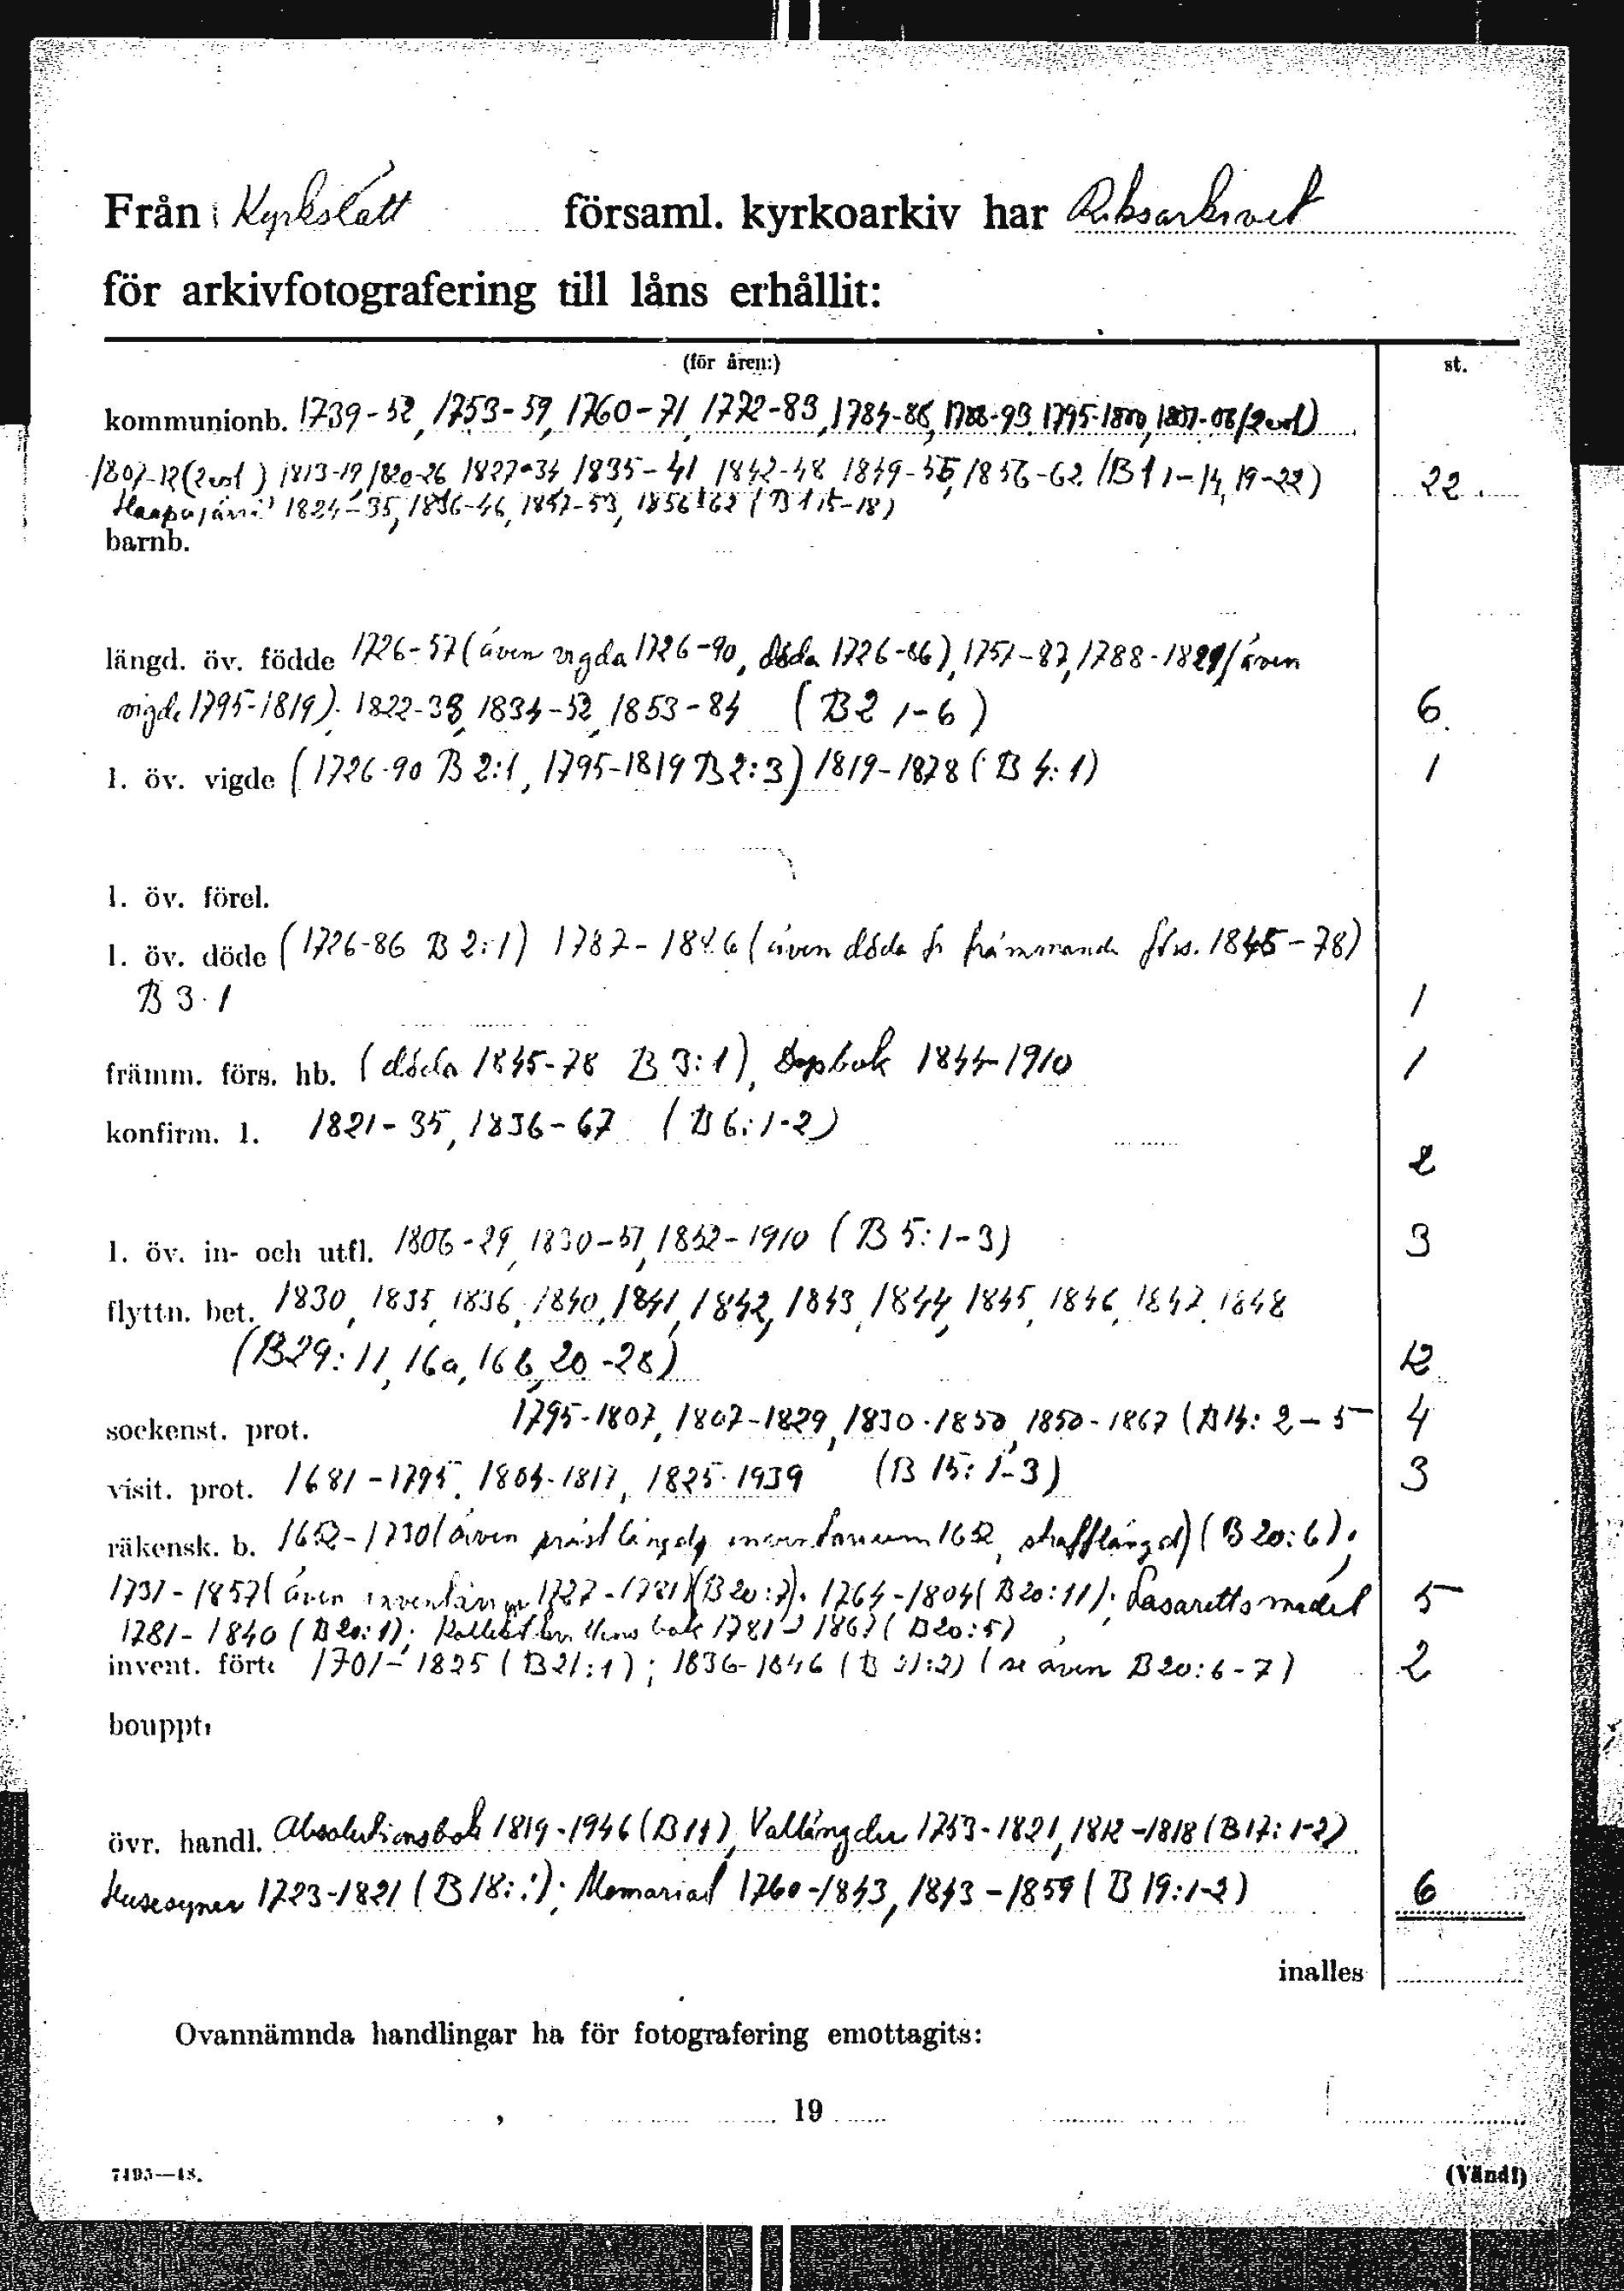 Från Kyrkslätt församl. kyrkoarkiv har Riksarkivet
för arkivfotografering till låns erhållit:
(för åren:) st.
kommunionb. 1739-52, 1753-59, 1760-71, 1772-83, 1784-86, 1788-93, 1795-1800, 1801-06 (2 vol)
1807-12 (2 vol) 1813-19, 1820-26 1827-34, 1835-41 1842-48 1849-55, 1856-62 (B 1 1-14, 19-22) 22
Haapajärvi 1824-35, 1836-46, 1847-53, 1856-62 (B 1 15-18)
barnb.
längd. öv. födde 1726-57 (även vigda 1726-90, döda 1726-86), 1757-87, 1788-1821 (även
vigde 1795-1819). 1822-33, 1834-52, 1853-84 (B 2 1-6) 6
l. öv. vigde (1726-90 B 2:1, 1795-1819 B 2:3) 1819-1878 (B 4:1) 1
l. öv. förel.
l. öv. döde (1726-86 B 2:1) 1787-1846 (även döda fr främmande förs. 1845-78)
B 3:1 1
främm. förs. hb. (döda 1845-78 B 3:1), Dopbok 1844-1910 1
konfirm. l. 1821-35, 1836-67 (B 6:1-2)
2
l. öv. in- och utfl. 1806-29, 1830-51, 1852-1910 (B 5:1-3) 3
flyttn. bet. 1830, 1835, 1836, 1840, 1841, 1842, 1843, 1844, 1845, 1846, 1847, 1848
(B29: 11, 16a, 16b, 20-28) 12
sockenst. prot. 1795-1807, 1807-1829, 1830-1850, 1850-1867 (B 14: 2-5 4
visit. prot. 1681-1795, 1804-1817, 1825-1939 (B 15: 1-3) 3
räkensk. b. 1652-1730 (även inventarium 1652, strafflängd) (B 20:6);
1731-1857 (även 1727-1781) (B 20:7). 1764-1804 (B 20:11); Lasarettsmedel 5
1781-1840 (B 20:1); bok 1781-1867 (B 20:5)
invent. fört. 1701-1825 (B 21:1); 1836-1846 (B 21:2) (se även B 20:6-7) 2
bouppt.
övr. handl. Absolutionsbok 1819-1946 (B 11), Vallängder 1753-1821, 1812-1818 (B 17: 1-2)
Husesyner 1723-1821 (B 18:1); Memorial 1760-1843, 1843-1859 (B 19:1-2) 6
inalles
Ovannämnda handlingar ha för fotografering emottagits:
, 19
7493—48. (Vänd!)